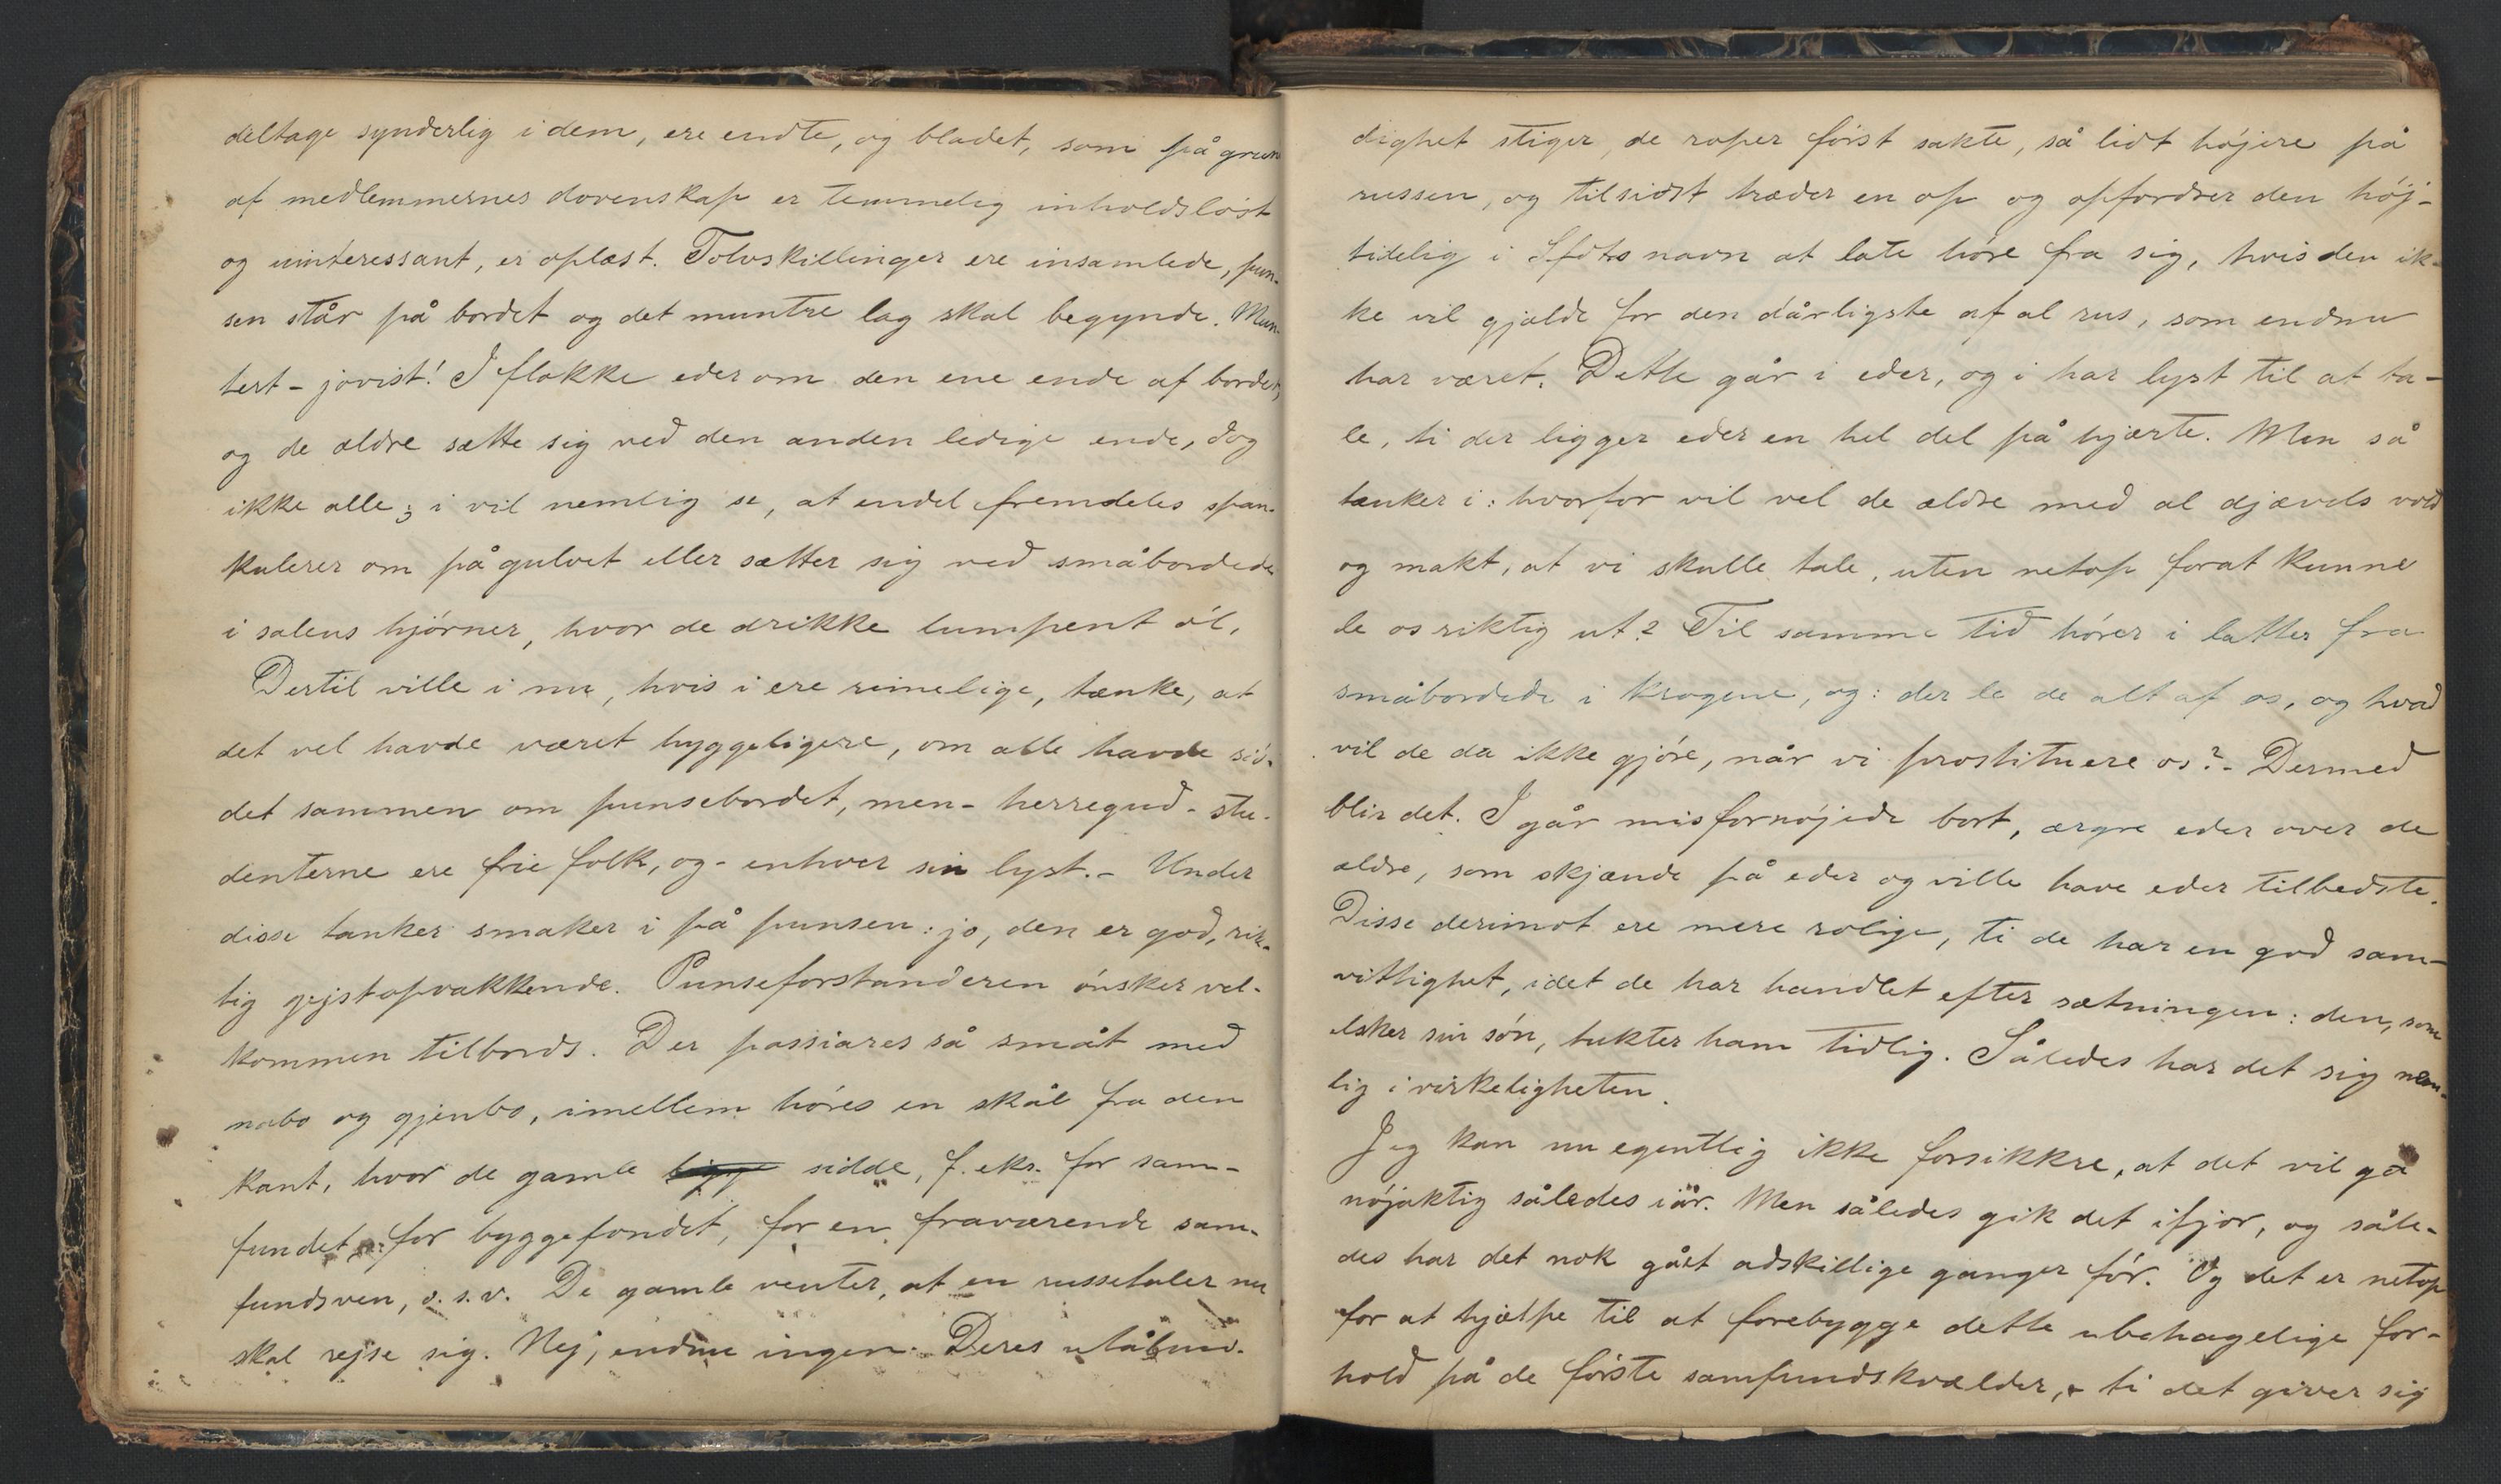 deltage synderlig i dem, ere endte, og bladet, som på grun
af medlemmernes dovenskap er temmelig inholdsløst
og uinteressant, er oplæst. Tolvskillinger ere insamlede, pun-
sen står på bordet og det muntre lag skal begynde. Mun-
tert - jovist! I flokke eder om den ene ende af bordet,
og de ældre sætte sig ved den anden ledige ende, dog
ikke alle; i vil nemlig se, at endel fremdeles span-
kulerer om på gulvet eller sætter sig ved småbordede
i salens hjørner, hvor de drikke lumpent øl.
Dertil ville i nu, hvis i ere rimelige, tænke, at
det vel havde været hyggeligere, om alle havde sid-
det sammen om punsebordet, men - herregud - stu-
denterne ere frie folk, og - enhver sin lyst. - Under
disse tanker smaker i på punsen: jo, den er god, rik-
tig gejstopvakkende. Punseforstanderen ønsker vel-
kommen tilbords. Der passiares så småt med
nabo og gjenbo, imellem høres en skål fra den
kant, hvor de gamle ligge sidde, f. eks. for sam-
fundet, for byggefondet, for en fraværende sam-
fundsven, o. s. v. De gamle venter, at en russetaler nu
skal rejse sig. Nej, endnu ingen. Deres utålmo-
dighet stiger, de roper først sakte, så lidt højere på
russen, og tilsidst træder en op og opfordrer den høj-
tidelig i Sfdts navn at late høre fra sig, hvis den ik-
ke vil gjælde for den dårligste af al rus, som endnu
har været. Dette går i eder, og i har lyst til at ta-
le, ti der ligger eder en hel del på hjærte. Men så
tænker i: hvorfor vil vel de ældre med al djævels vold
og makt, at vi skulle tale, uten netop forat kunne
le os riktig ut? Til samme tid hører i latter fra
småbordede i krogene, og: der le de alt af os, og hvad
vil de da ikke gjøre, når vi prostituere os? - Dermed
blir det. I går misfornøjede bort, ærgre eder over de
ældre, som skjænde på eder og ville have eder tilbedste.
Disse derimot ere mere rolige, ti de har en god sam-
vittighet, idet de har handlet efter sætningen: den, som
elsker sin søn, tukter ham tidlig. Således har det sig nem-
lig i virkeligheten.
Jeg kan nu egentlig ikke forsikkre, at det vil gå
nøjaktig således iår. Men således gik det ifjor, og såle-
des har det nok gået adskillige ganger før. Og det er netop
for at hjælpe til at forebygge dette ubehagelige for-
hold på de første samfundskvælder, - ti det giver sig